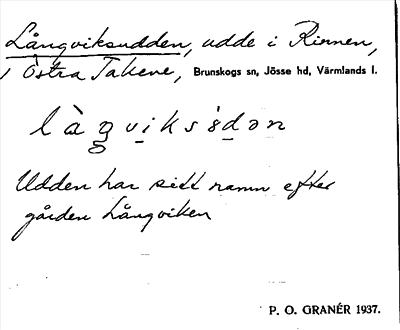 Långviksudden, udde i Rinnen,
i Östra Takene, Brunskogs sn, Jösse hd, Värmlands l.
Udden har sitt namn efter
gården Långviken
P. O. GRANÉR 1937.